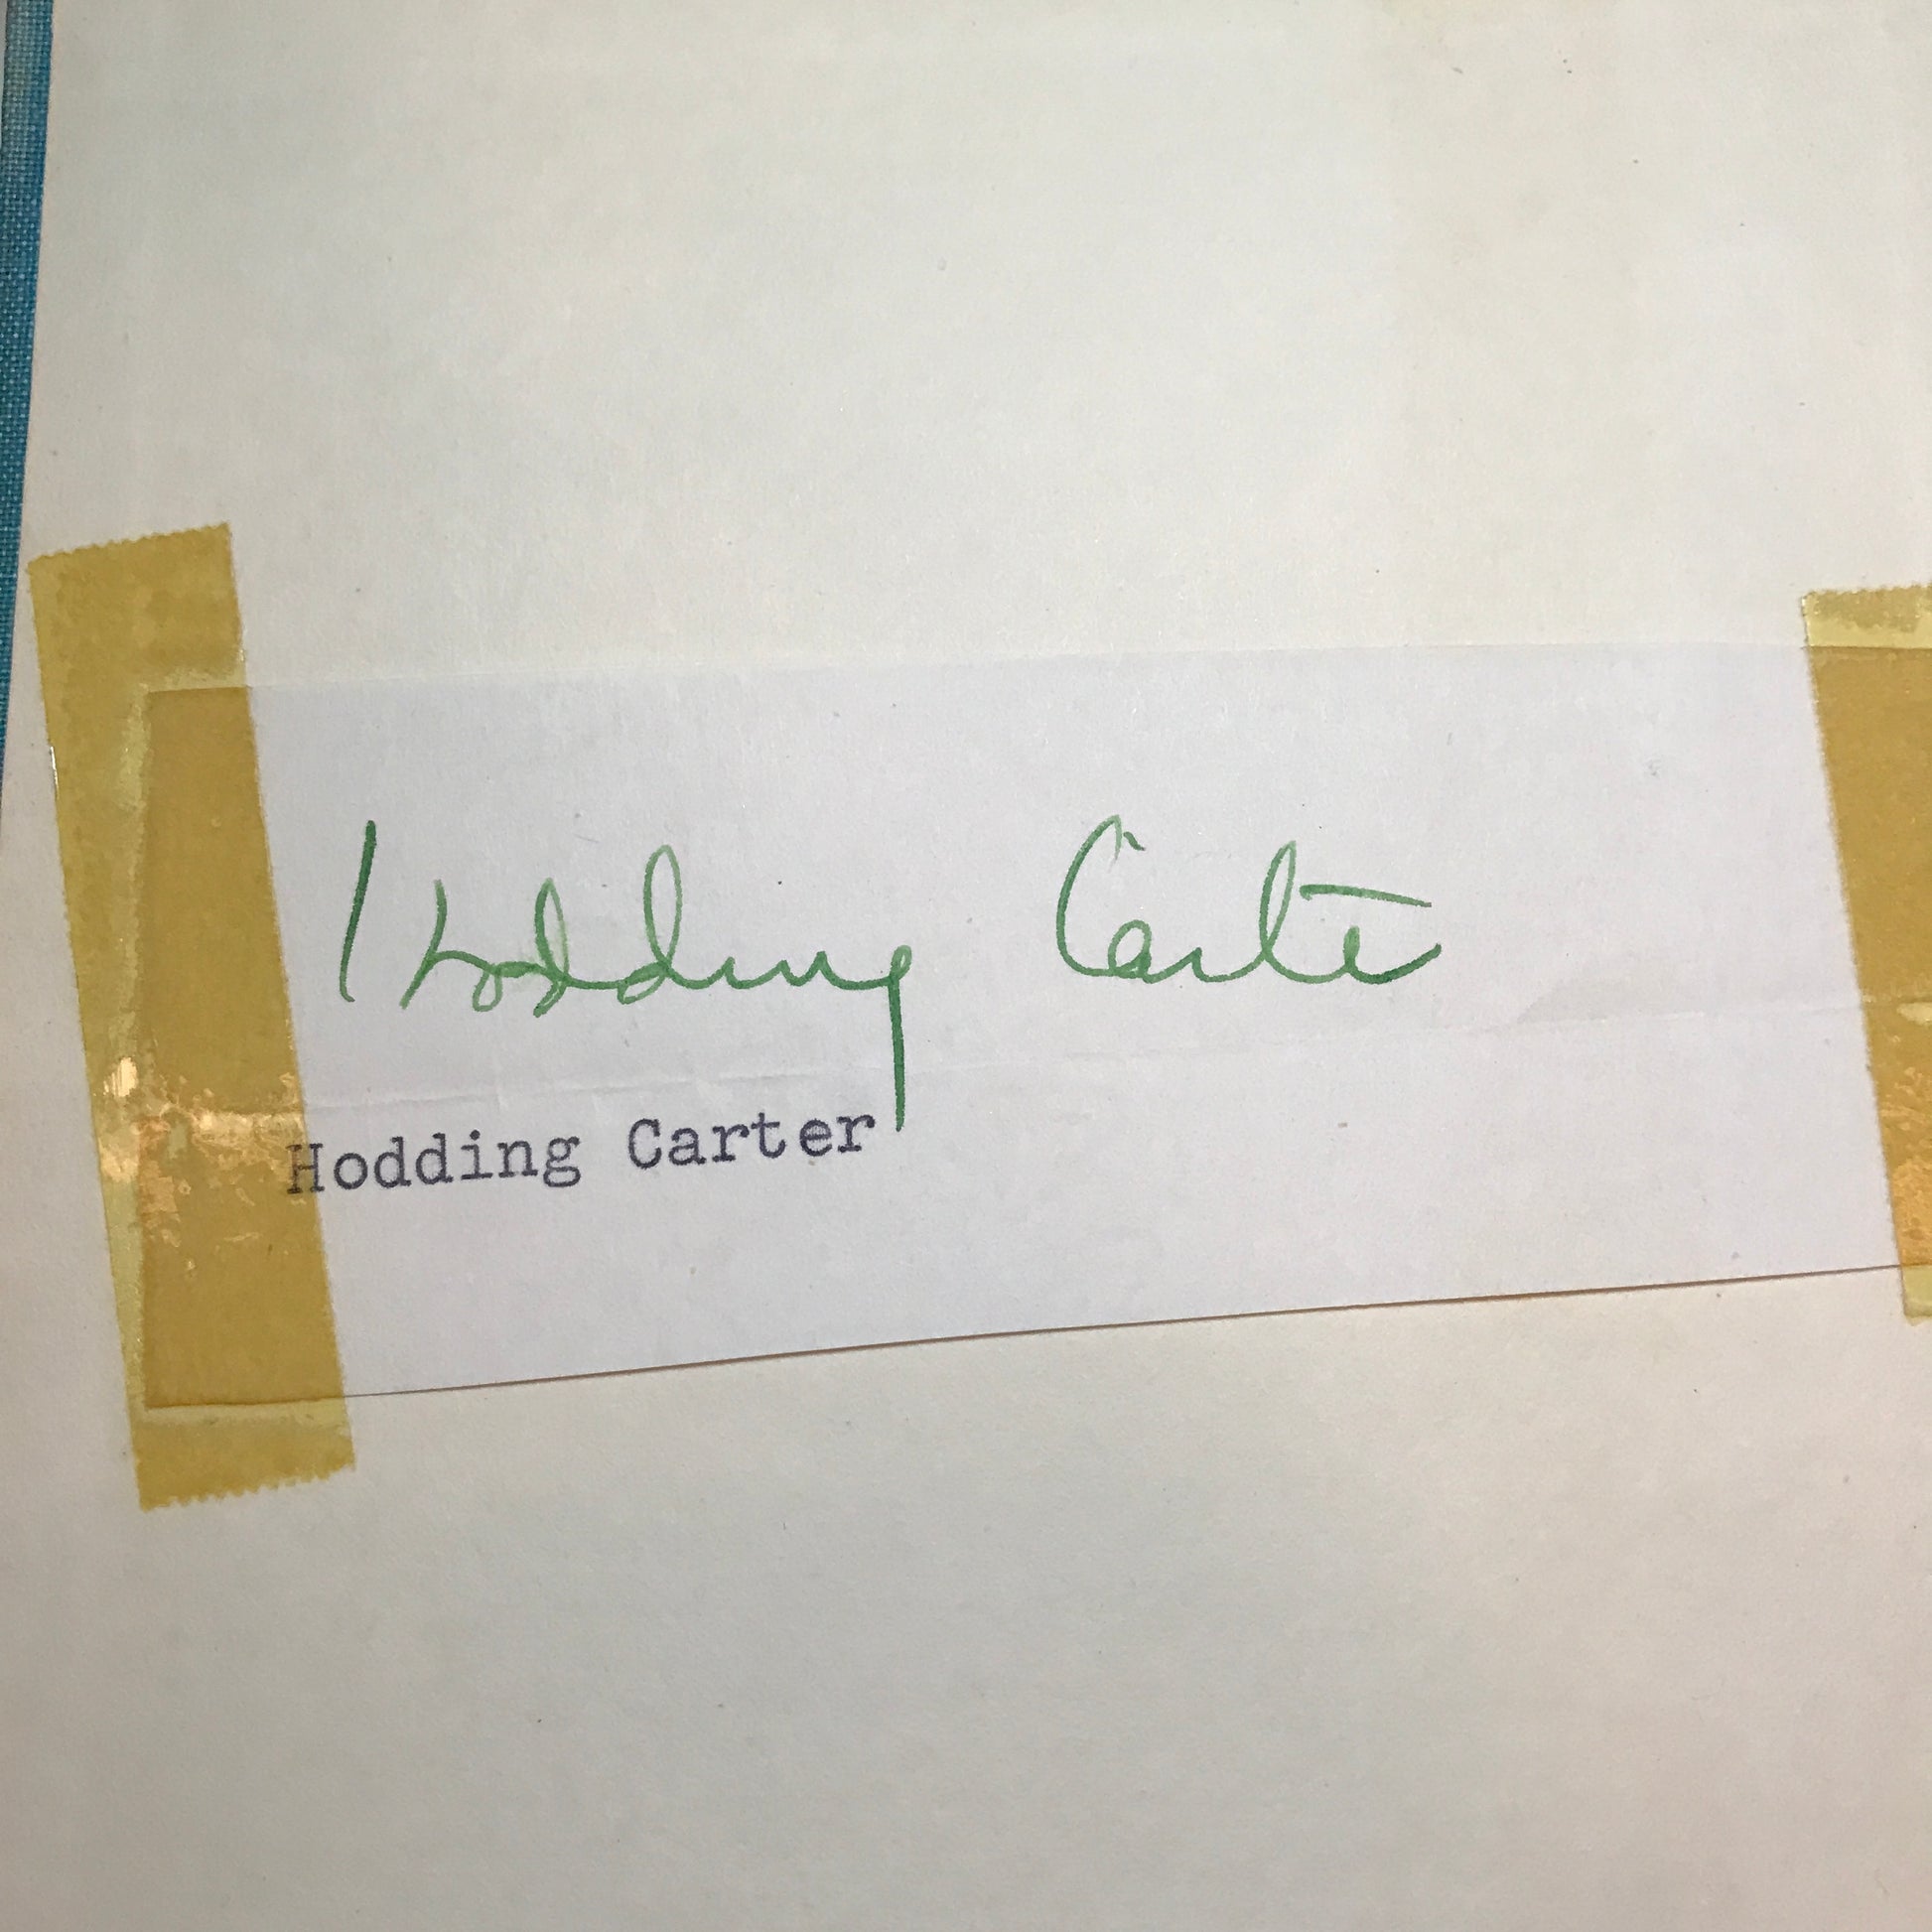 Hodding Carter
Hodding Carter